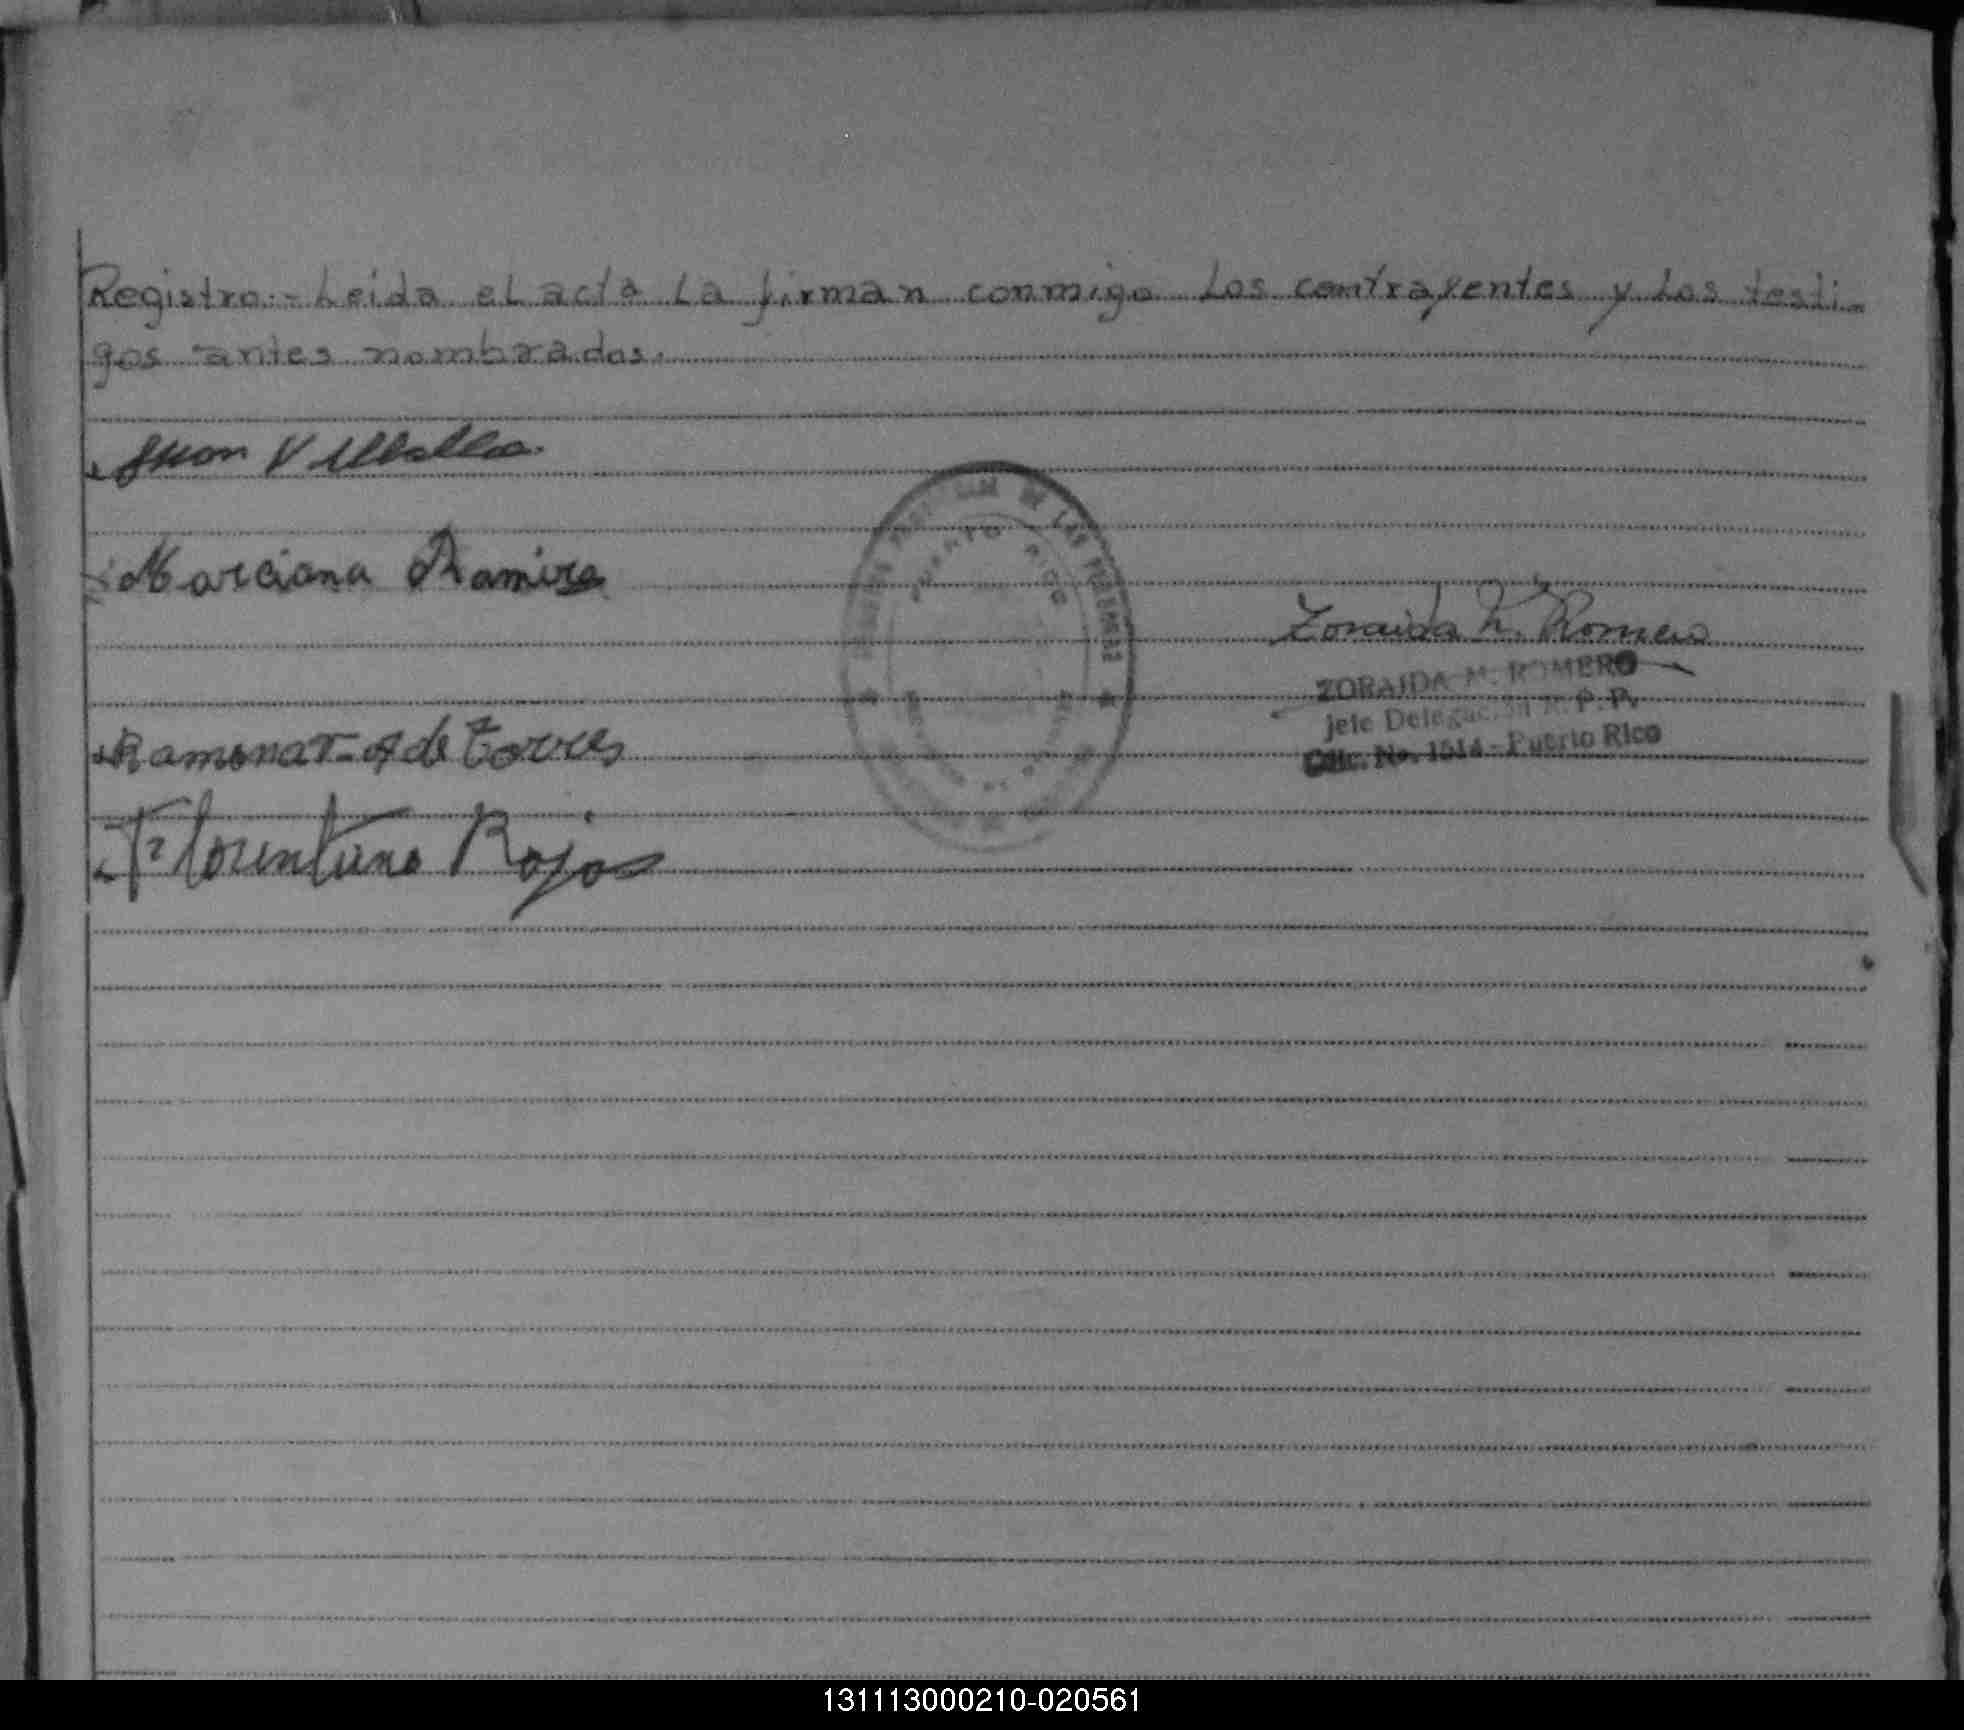 Registro.- Leida el acta la firman conmigo los contrayentes y los testi-
gos antes nombrados.
Juan Villalba
Marciana Ramire
DE LAS PERSONAS
PUERTO RICO
Zoraida M. Romero
ZORAIDA M. ROMERO
Jefe Delegación R. P. P.
Ofic. No. 1514 - Puerto Rico
Ramona T. A de Torres
Florentino Rojas
131113000210-020561